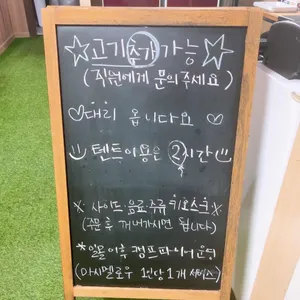 ☆고기 추가 가능☆
(직원에게 문의주세요)
♡대리 옵니다요♡
텐트이용은 2시간
X 사이드·음료·주류 키오스크 X
(주문 후 꺼내가시면 됩니다)
*일몰 이후 캠프파이어 운영
(마시멜로우 1인당 1개 서비스)